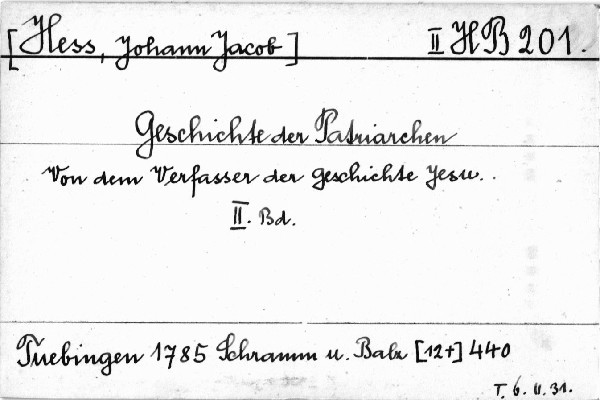 [Hess, Johann Jacob] II HB 201.
Geschichte der Patriarchen
Von dem Verfasser der Geschichte Jesu..
II. Bd.
Tuebingen 1785 Schramm u. Balz [12+] 440
T. 6. II. 31.